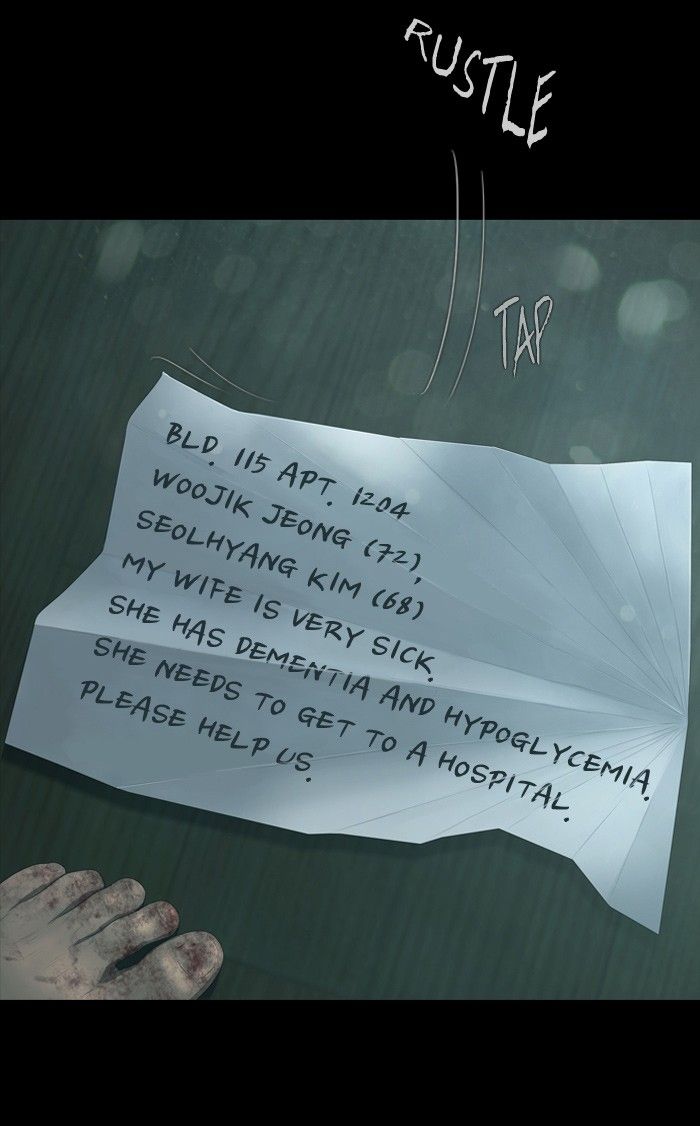 RUSTLE
TAP
BLD. 115 APT. 1204
WOOJIK JEONG (72),
SEOLHYANG KIM (68)
MY WIFE IS VERY SICK.
SHE HAS DEMENTIA AND HYPOGLYCEMIA.
SHE NEEDS TO GET TO A HOSPITAL.
PLEASE HELP US.